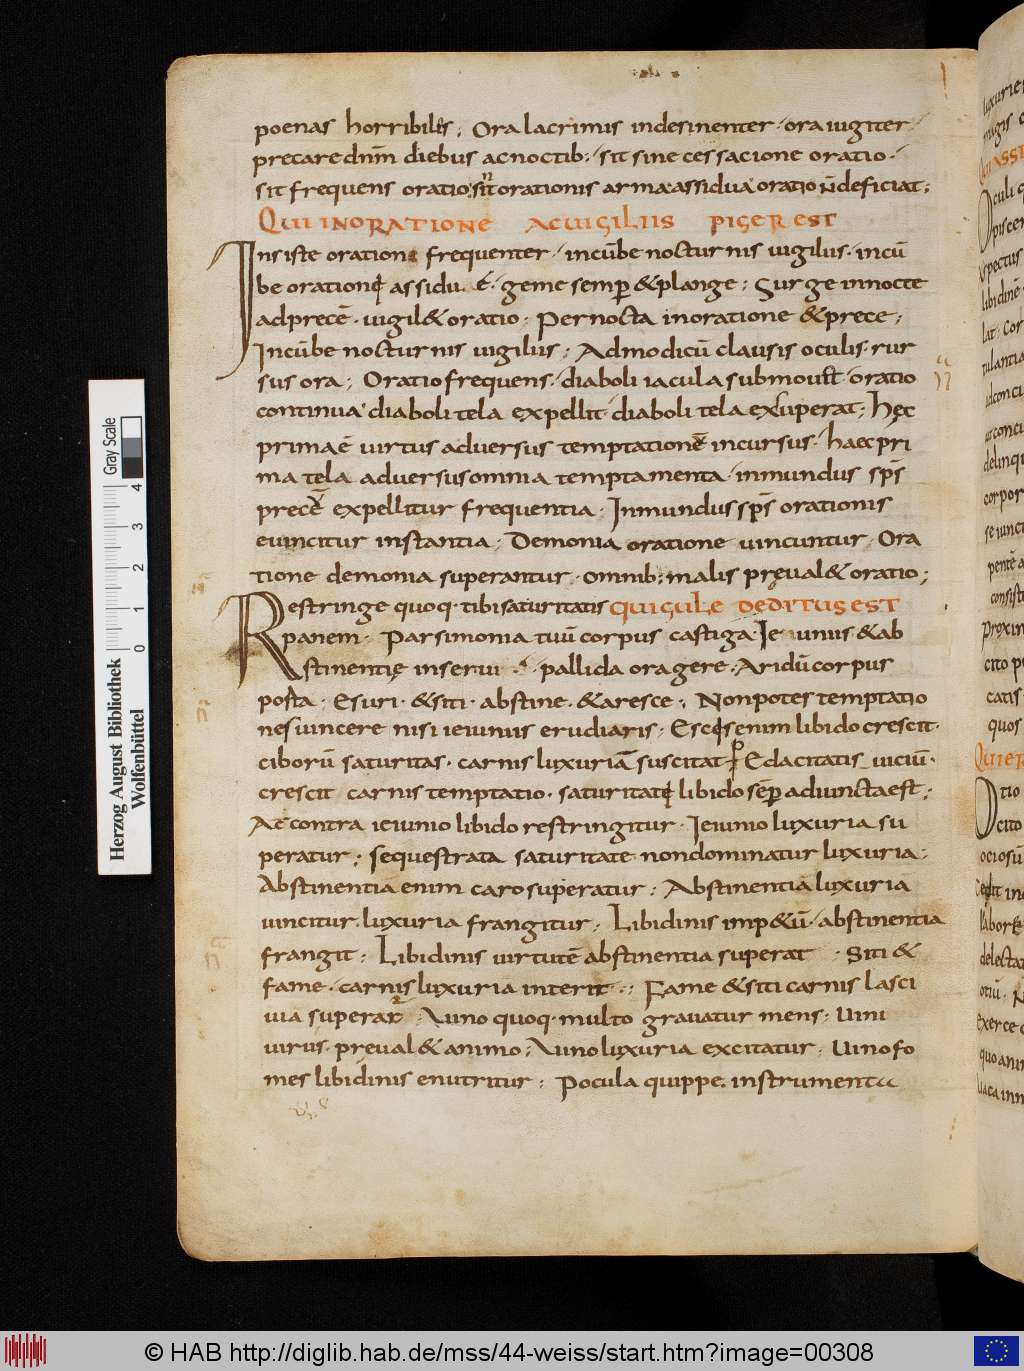 poenas horribiles; Ora lacrimis indesinenter · ora iugiter
precare dnm̄ diebus ac noctib; · sit sine cessacione oratio ·
sit frequens oratio sīt orationis arma assidua oratio n̄ deficiat;
QUI IN ORATIONE AC UIGILIIS PIGER EST
Insiste oratione frequenter · incūbe nocturnis uigiliis · incū
be orationę assidu e · geme semp̄ & plange; Surge in nocte
ad precē · uigil& oratio · Pernocta in oratione & prece;
Incūbe nocturnis uigiliis; Ad modicū clausis oculis · rur
sus ora; Oratio frequens · diaboli iacula submou&t · oratio
continua diaboli tela expellit · diaboli tela exsuperat; hęc
prima ē uirtus aduersus temptationē incursus · haec pri
ma tela aduersus omnia temptamenta · inmundus sp̄s
precē expellitur frequentia · Inmundus sp̄s orationis
euincitur instantia; Demonia oratione uincuntur · Ora
tione demonia superantur · omnib; malis pręual& oratio;
Restringe quoq· tibi saturitatis QUI GULE DEDITUS EST
panem · Parsimonia tuū corpus castiga · Ieiuniis & ab
stinentię inserui · pallida ora gere · Aridū corpus
posta; Esuri · & siti · abstine · & aresce; Non potes temptatio
nes uincere nisi ieiuniis erudiaris; Escis enim libido crescit ·
ciborū saturitas · carnis luxuriā suscitat · Edacitatis uiciū ·
crescit carnis temptatio · saturitatę libido sēp adiuncta est;
At contra ieiunio libido restringitur · Ieiunio luxuria su
peratur; sequestrata saturitate non dominatur luxuria;
Abstinentia enim caro superatur; Abstinentia luxuria
uincitur · luxuria frangitur; Libidinis imp&ū · abstinentia
frangit; Libidinis uirtutē abstinentia superat · Siti &
fame · carnis luxuria interit · Fame & siti carnis lasci
uia superatur · A uino quoq· multo grauatur mens; Uini
uirus · preual& animo; A uino luxuria excitatur; Uino fo
mes libidinis enutritur; Pocula quippe · instrumenta
Gray Scale
0 1 2 3 4
Herzog August Bibliothek
Wolfenbüttel
© HAB http://diglib.hab.de/mss/44-weiss/start.htm?image=00308